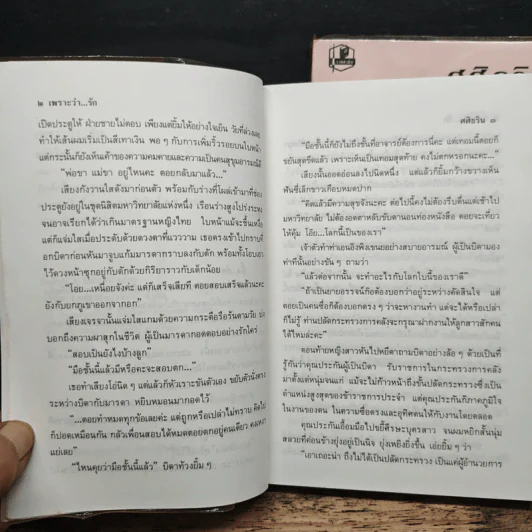 ๒ เพราะว่า...รัก
เปิดประตูให้ ฝ่ายชายไม่ตอบ เพียงแต่ยิ้มให้อย่างใจเย็น วัยที่ล่วงเลย
ทำให้เส้นผมเริ่มเป็นสีเทาเงิน พอ ๆ กับการเพิ่มริ้วรอยบนใบหน้า
แต่กระนั้นก็ยังเห็นเค้าของความคมคายและความเป็นคนสุขุมอารมณ์ดี
“พ่อขา แม่ขา อยู่ไหนคะ ตอยกลับมาแล้ว...”
เสียงกังวานใสดังมาก่อนตัว พร้อมกับร่างที่โผล่เข้ามาที่ช่อง
ประตูยังอยู่ในชุดนิสิตมหาวิทยาลัยแห่งหนึ่ง เรือนร่างสูงโปร่งระหง
จนอาจเรียกได้ว่าเกินมาตรฐานหญิงไทย ใบหน้าแม้จะขึ้นเหงื่อ
แต่ก็แจ่มใสเมื่อประดับด้วยดวงตาที่แวววาม เธอตรงเข้าไปกราบที่
อกบิดาก่อนหันมาจูบแก้มมารดากราบลงกับตัก พร้อมทั้งโอบเอว
ไว้ดวงหน้าซุกอยู่กับตักด้วยกิริยาราวกับเด็กน้อย
“โอย...เหนื่อยจังค่ะ แต่ก็เสร็จเสียที ตอยสอบเสร็จแล้วนะคะ
ยังกับยกภูเขาออกจากอก”
เสียงเจรจานั้นแจ่มใสแกมด้วยความกระตือรือร้นตามวัย
บอกถึงความผาสุกในชีวิต ผู้เป็นมารดากอดตอบอย่างรักใคร่
“สอบเป็นยังไงบ้างลูก”
“มือชั้นนี้แล้วมีหรือคะจะสอบตก...”
เธอทำเสียงโอ่นิด ๆ แต่แล้วก็หัวเราะขบขันตัวเอง ขยับตัวนั่งตรง
ระหว่างบิดากับมารดา หยิบหมอนมากอดไว้
“...ตอยทำหมดทุกข้อเลยค่ะ แต่ถูกหรือเปล่าไม่ทราบ คิดไป
ก็ปอดเหมือนกัน กลัวเพื่อนสอบได้หมดตอยตกอยู่คนเดียว คงเหงา
แย่เลย”
“ไหนคุยว่ามือชั้นนี้แล้ว” บิดาท้วงยิ้ม ๆ
ศศิธวิน ๓
“มือชั้นนี้ก็ยังไม่ถึงชั้นที่อาจารย์ต้องการนี่คะ แต่เทอมนี้ตอยก็
ขยันสุดขีดแล้ว เพราะเห็นเป็นเทอมสุดท้าย คงไม่ตกหรอกนะคะ...”
เสียงนั้นออดอ่อนลงไปนิดหนึ่ง แต่แล้วก็ยิ้มกว้างขวางเห็น
ฟันซี่เล็กขาวเกือบหมดปาก
“คิดแล้วมีความสุขจังนะคะ ต่อไปนี้คงไม่ต้องรีบตื่นแต่เช้าไป
มหาวิทยาลัย ไม่ต้องอดตาหลับขับตานอนท่องหนังสือ ตอยจะเที่ยว
ให้คุ้ม โอ๊ย...โลกนี้เป็นของเรา”
เจ้าตัวทำท่าเอนอิงพิงเขนยอย่างสบายอารมณ์ ผู้เป็นบิดามอง
ท่าที่นั้นอย่างขัน ๆ ถามว่า
“แล้วต่อจากนั้น จะทำอะไรกับโลกใบนี้ของเราดี”
“ถ้าเป็นยายอรรถก็ต้องบอกว่าอยู่ระหว่างตัดสินใจ แต่
ตอยเป็นคนซื่อก็ต้องบอกตรง ๆ ว่าจะหางานทำ แต่จะได้หรือเปล่า
ก็ไม่รู้ ท่านปลัดกระทรวงการคลังจะกรุณาฝากงานให้ลูกสาวสักคน
ได้ไหมล่ะคะ”
ตอนท้ายหญิงสาวหันไปหยีตาถามบิดาอย่างล้อ ๆ ด้วยเป็นที่
รู้กันว่าคุณประกันผู้เป็นบิดา รับราชการในกระทรวงการคลัง
มาตั้งแต่หนุ่มจนแก่ แม้จะไม่ก้าวหน้าถึงชั้นปลัดกระทรวงซึ่งเป็น
ตำแหน่งสูงสุดของข้าราชการประจำ แต่คุณประกันก็ภาคภูมิใจ
ในงานของตน ในความซื่อตรงและอุทิศตนให้กับงานโดยตลอด
คุณประกันเอื้อมมือไปขยี้ศีรษะบุตรสาว จนผมหยิกสั้นนุ่ม
สลวยที่ค่อนข้างยุ่งอยู่เป็นนิจ ยุ่งเหยิงยิ่งขึ้น เอ่ยยิ้ม ๆ ว่า
“เอาเถอะน่า ถึงไม่ได้เป็นปลัดกระทรวง เป็นแค่ผู้อำนวยการ